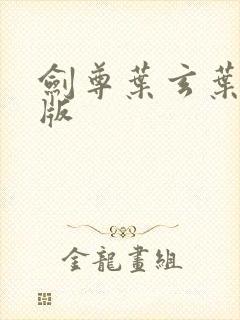 劍尊葉玄葉
版
金龍畫組